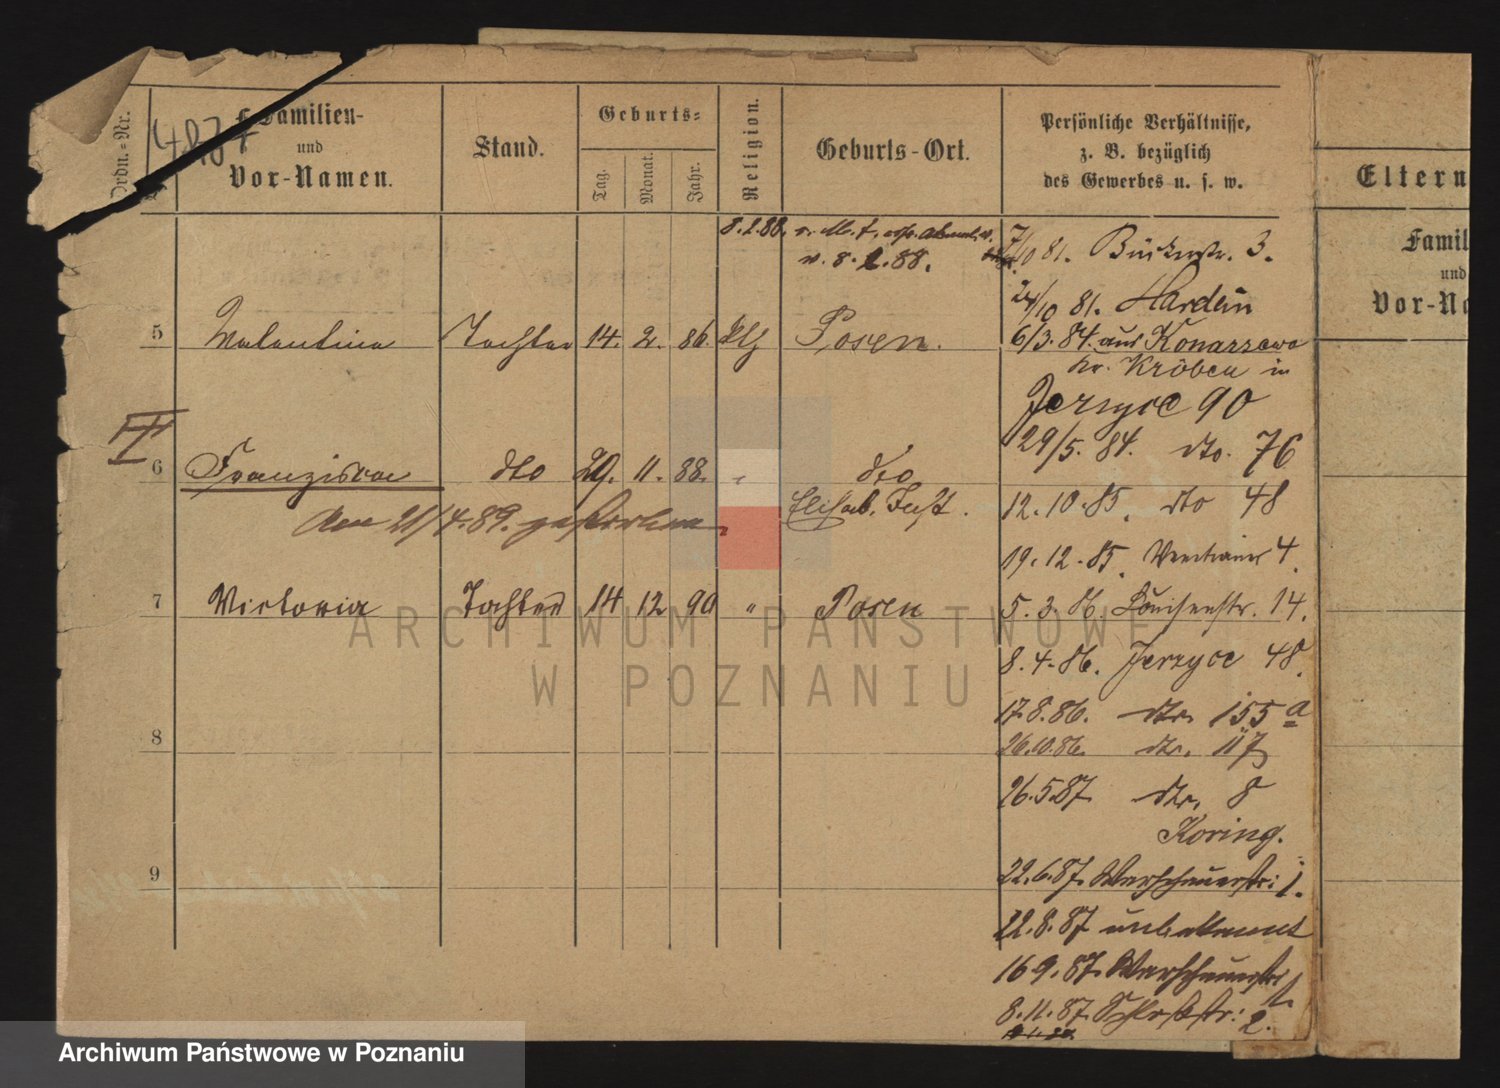 Ordn.=Nr.
4837
Familien-
und
Vor-Namen.
Stand.
Geburts=
Tag.
Monat.
Jahr.
Religion.
Geburts-Ort.
Persönliche Verhältnisse,
z. B. bezüglich
des Gewerbes u. s. w.
Eltern
Famil
und
Vor-Na
8.2.88.
v. 8. 2. 88.
7/10 81. 3.
24/10 81. Hardein
5 Valentina Tochter 14. 2. 86. Posen.
6/3. 84. aus Konarzewo
Kr. Kröben in
Jerzyce 90
29/5. 84. dto. 76
6 Franziska dto 29. 11. 88. " dto
Elisab. Just.
12. 10. 85. dto 48
Am 21/4. 89. gestorben
19. 12. 85. 4.
7 Victoria Tochter 14 12 90 " Posen
5. 3. 86. Louisenstr. 14.
8. 4. 86. Jerzyce 48.
17.8.86. dto. 155 a
8
26.10.86. dto. 117
26.5.87 dto. 8
Koring.
9
22.6.87. Warschauerstr: 1.
22.8.87 unbekannt
16 9. 87. Warschauerstr: 1.
8.11.87. Schloßstr: 2.
ARCHIWUM PAŃSTWOWE
W POZNANIU
Archiwum Państwowe w Poznaniu